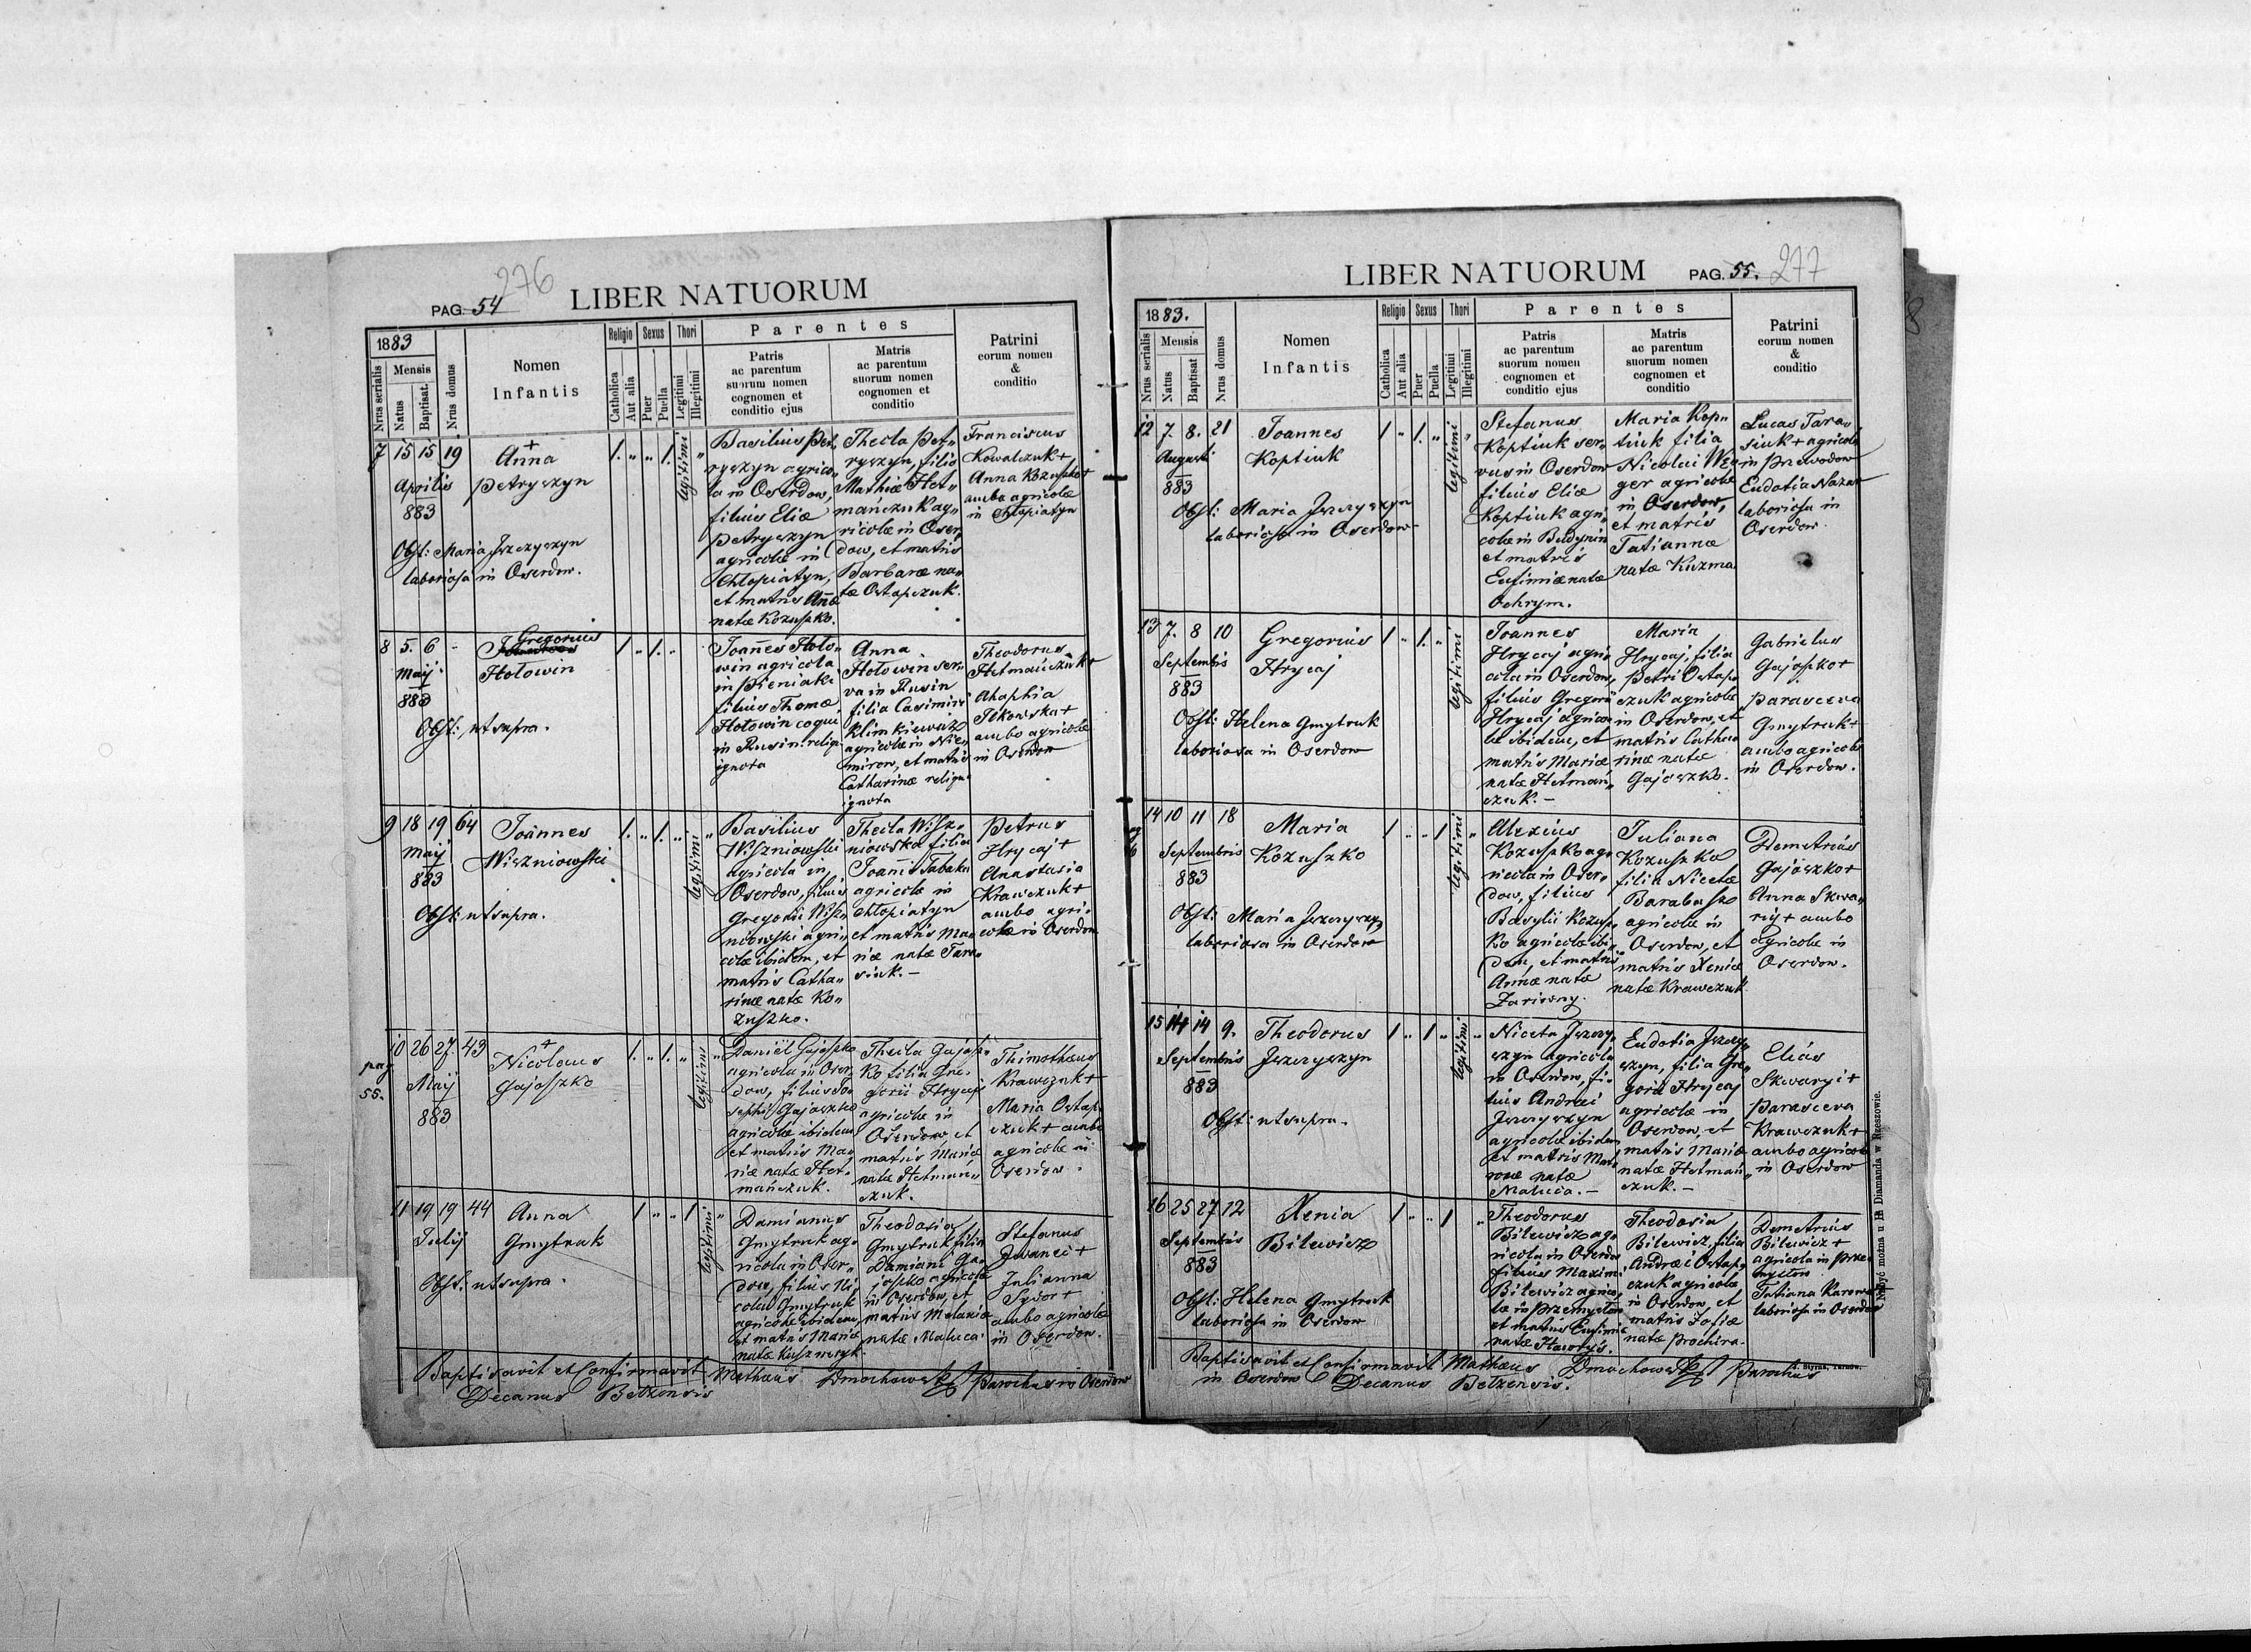 276
PAG. 54
LIBER NATUORUM
1883
Nrus serialis
Mensis
Natus
Baptisat.
Nrus domus
Nomen
Infantis
Religio
Catholica
Aut alia
Sexus
Puer
Puella
Thori
Legitimi
Illegitimi
Parentes
Patris
ac parentum
suorum nomen
cognomen et
conditio ejus
Matris
ac parentum
suorum nomen
cognomen et
conditio
Patrini
eorum nomen
&
conditio
7 15 15 19
Aprilis
883
Anna
Petryszyn
Obst: Maria Jszczyszyn
laboriosa in Oserdow.
1. „ „ 1. legitimi „
Basilius Pet„
ryszyn agrico„
la in Oserdow,
filius Eliæ
Petryszyn
agricolæ in
Chłopiatyn,
et matris Anæ
natæ Kozuszko.
Thecla Pet„
ryszyn, filia
Mathiæ Het„
manczuk ag„
ricolæ in Oser„
dow, et matris
Barbaræ na„
tæ Ostapczuk.
Franciscus
Kowalczuk +
Anna Kozuszko +
ambo agricolæ
in Chłopiatyn
8 5. 6 „
Maij
883
Gregorius
Hołowin
Obst: ut supra.
1 „ 1. „
Joannes Hoło„
win agricola
in Pieniaki
filius Thomæ
Hołowin coqui
in Rusin religi
ignota
Anna
Hołowin ser„
va in Rusin
filia Casimiri
Klimkiewicz
agricolæ in Nie„
mirow, et matris
Catharinæ relig„
ignota
Theodorus
Hetmańczuk +
Ahaphia
ambo agricolæ
in Oserdow
9 18 19 64
Maij
883
Joannes
Wiszniowski
Obst: ut supra.
1. „ 1. „ legitimi „
Basilius
Wiszniowski
agricola in
Oserdow, filius
Gregorii Wisz„
niowski agri„
colæ ibidem, et
matris Catha„
rinæ natæ Ko„
zuszko.
Thecla Wisz„
niowska filia
Joanni Tabaka
agricolæ in
Chłopiatyn
et matris Ma„
riæ natæ Tara„
siuk. –
Petrus
Hrycaj +
Anastasia
Krawczuk +
ambo agri„
colæ in Oserdow
pag
55.
10 26 27 43
Maij
883
Nicolaus
Gajoszko
1. „ 1. „ legitimi „
Daniël Gajoszko
agricola in Oser„
dow, filius Jo„
sephi Gajoszko
agricolæ ibidem
et matris Ma„
riæ natæ Het„
mańczuk.
Thecla Gajosz„
ko filia Gre„
gorii Hrycaj
agricolæ in
Oserdow, et
matris Mariæ
natæ Hetmań„
czuk.
Thimotheus
Krawczuk +
Maria Ostap„
czuk + ambo
agricolæ in
Oserdow.
11 19 19 44
Julij
Anna
Gmytruk
Obst: ut supra.
1 „ „ 1 legitimi „
Damianus
Gmytruk ag„
ricola in Oser„
dow, filius Ni
colai Gmytruk
agricolæ ibidem,
et matris Mariæ
natæ
Theodosia
Gmytruk filia
Damiani Ga„
joszko agricolæ
in Oserdow, et
matris Melaniæ
natæ Maluca.
Stefanus
Jwanec +
Julianna
Sydor +
ambo agricolæ
in Oserdow.
Baptisavit et Confirmavit Mathæus Dmochowski Parochus in Oserdow
Decanus Bełzensis
LIBER NATUORUM
PAG. 55. 277
1883.
Nrus serialis
Mensis
Natus
Baptisat
Nrus domus
Nomen
Infantis
Religio
Catholica
Aut alia
Sexus
Puer
Puella
Thori
Legitimi
Illegitimi
Parentes
Patris
ac parentum
suorum nomen
cognomen et
conditio ejus
Matris
ac parentum
suorum nomen
cognomen et
conditio
Patrini
eorum nomen
&
conditio
12 7. 8. 21
Augusti
883
Joannes
Koptiuk
Obst: Maria Jszczyszyn
laboriosa in Oserdow
1 „ 1. „ legitimi „
Stefanus
Koptiuk ser„
vus in Oserdow
filius Eliæ
Koptiuk agri„
colæ in Budynin
et matris
Eufimiæ natæ
Ochrym.
Maria Kop„
tiuk filia
Nicolai Wę„
ger agricolæ
in Oserdow,
et matris
Tatiannæ
natæ Kuzma
Lucas Tara„
siuk + agricola
in Przewodow
Eudotia Nazar
laboriosa in
Oserdow.
13 7. 8 10
Septembris
883
Gregorius
Hrycaj
Obst: Helena Gmytruk
laboriosa in Oserdow
1 „ 1. „ legitimi
Joannes
Hrycaj agri„
cola in Oserdow,
filius Gregorii
Hrycaj agrico„
læ ibidem, et
matris Mariæ
natæ Hetmań„
czuk. –
Maria
Hrycaj, filia
Petri Ostap„
czuk agricolæ
in Oserdow, et
matris Catha„
rinæ natæ
Gajoszko.
Gabrielus
Gajoszko +
Parasceva
Gmytruk +
ambo agricolæ
in Oserdow.
14 10 11 18
Septembris
883
Maria
Kozuszko
Obst: Maria Jszczyszyn
laboriosa in Oserdow
1 „ „ 1 legitimi „
Alexius
Kozuszko ag„
ricola in Oser„
dow, filius
Basylii Kozusz„
ko agricolæ ibi„
dem, et matris
Annæ natæ
Zariczny.
Juliana
Kozuszko
filia Nicetæ
Barabasz
agricolæ in
Oserdow, et
matris Xeniæ
natæ Krawczuk
Demetrius
Gajoszko +
Anna Skwa„
ryj + ambo
agricolæ in
Oserdow.
15 14 14 9.
Septembris
883
Theodorus
Jszczyszyn
Obst: ut supra.
1 „ 1 „ legitimi „
Niceta Jszczy„
szyn agricola
in Oserdow, fi„
lius Andreæ
Jszczyszyn
agricolæ ibidem
et matris Mat„
ronæ natæ
Maluca. –
Eudotia Jszczy„
szyn, filia Gre„
gorii Hrycaj
agricolæ in
Oserdow, et
matris Mariæ
natæ Hetmań„
czuk. –
Elias
Skwaryj +
Parasceva
Krawczuk +
ambo agricolæ
in Oserdow
16 25 27 12
Septembris
883
Xenia
Bilewicz
Obst: Helena Gmytruk
laboriosa in Oserdow
1 „ „ 1 „
Theodorus
Bilewicz ag„
ricola in Oserdow
filius Maximi
Bilewicz agrico„
læ in Przemysłow
et matris Eufimiæ
natæ Hawryś.
Theodosia
Bilewicz, filia
Andreæ Ostap„
czuk agricolæ
in Oserdow, et
matris Zofiæ
natæ Prochira.
Demetrius
Bilewicz +
agricola in Prze„
mysłow
Tatiana
laboriosa in Oserdow
Baptisavit et Confirmavit Mathæus Dmochowski Parochus
in Oserdow Decanus Bełzensis.
Nabyć można u H Diamanda w Rzeszowie.